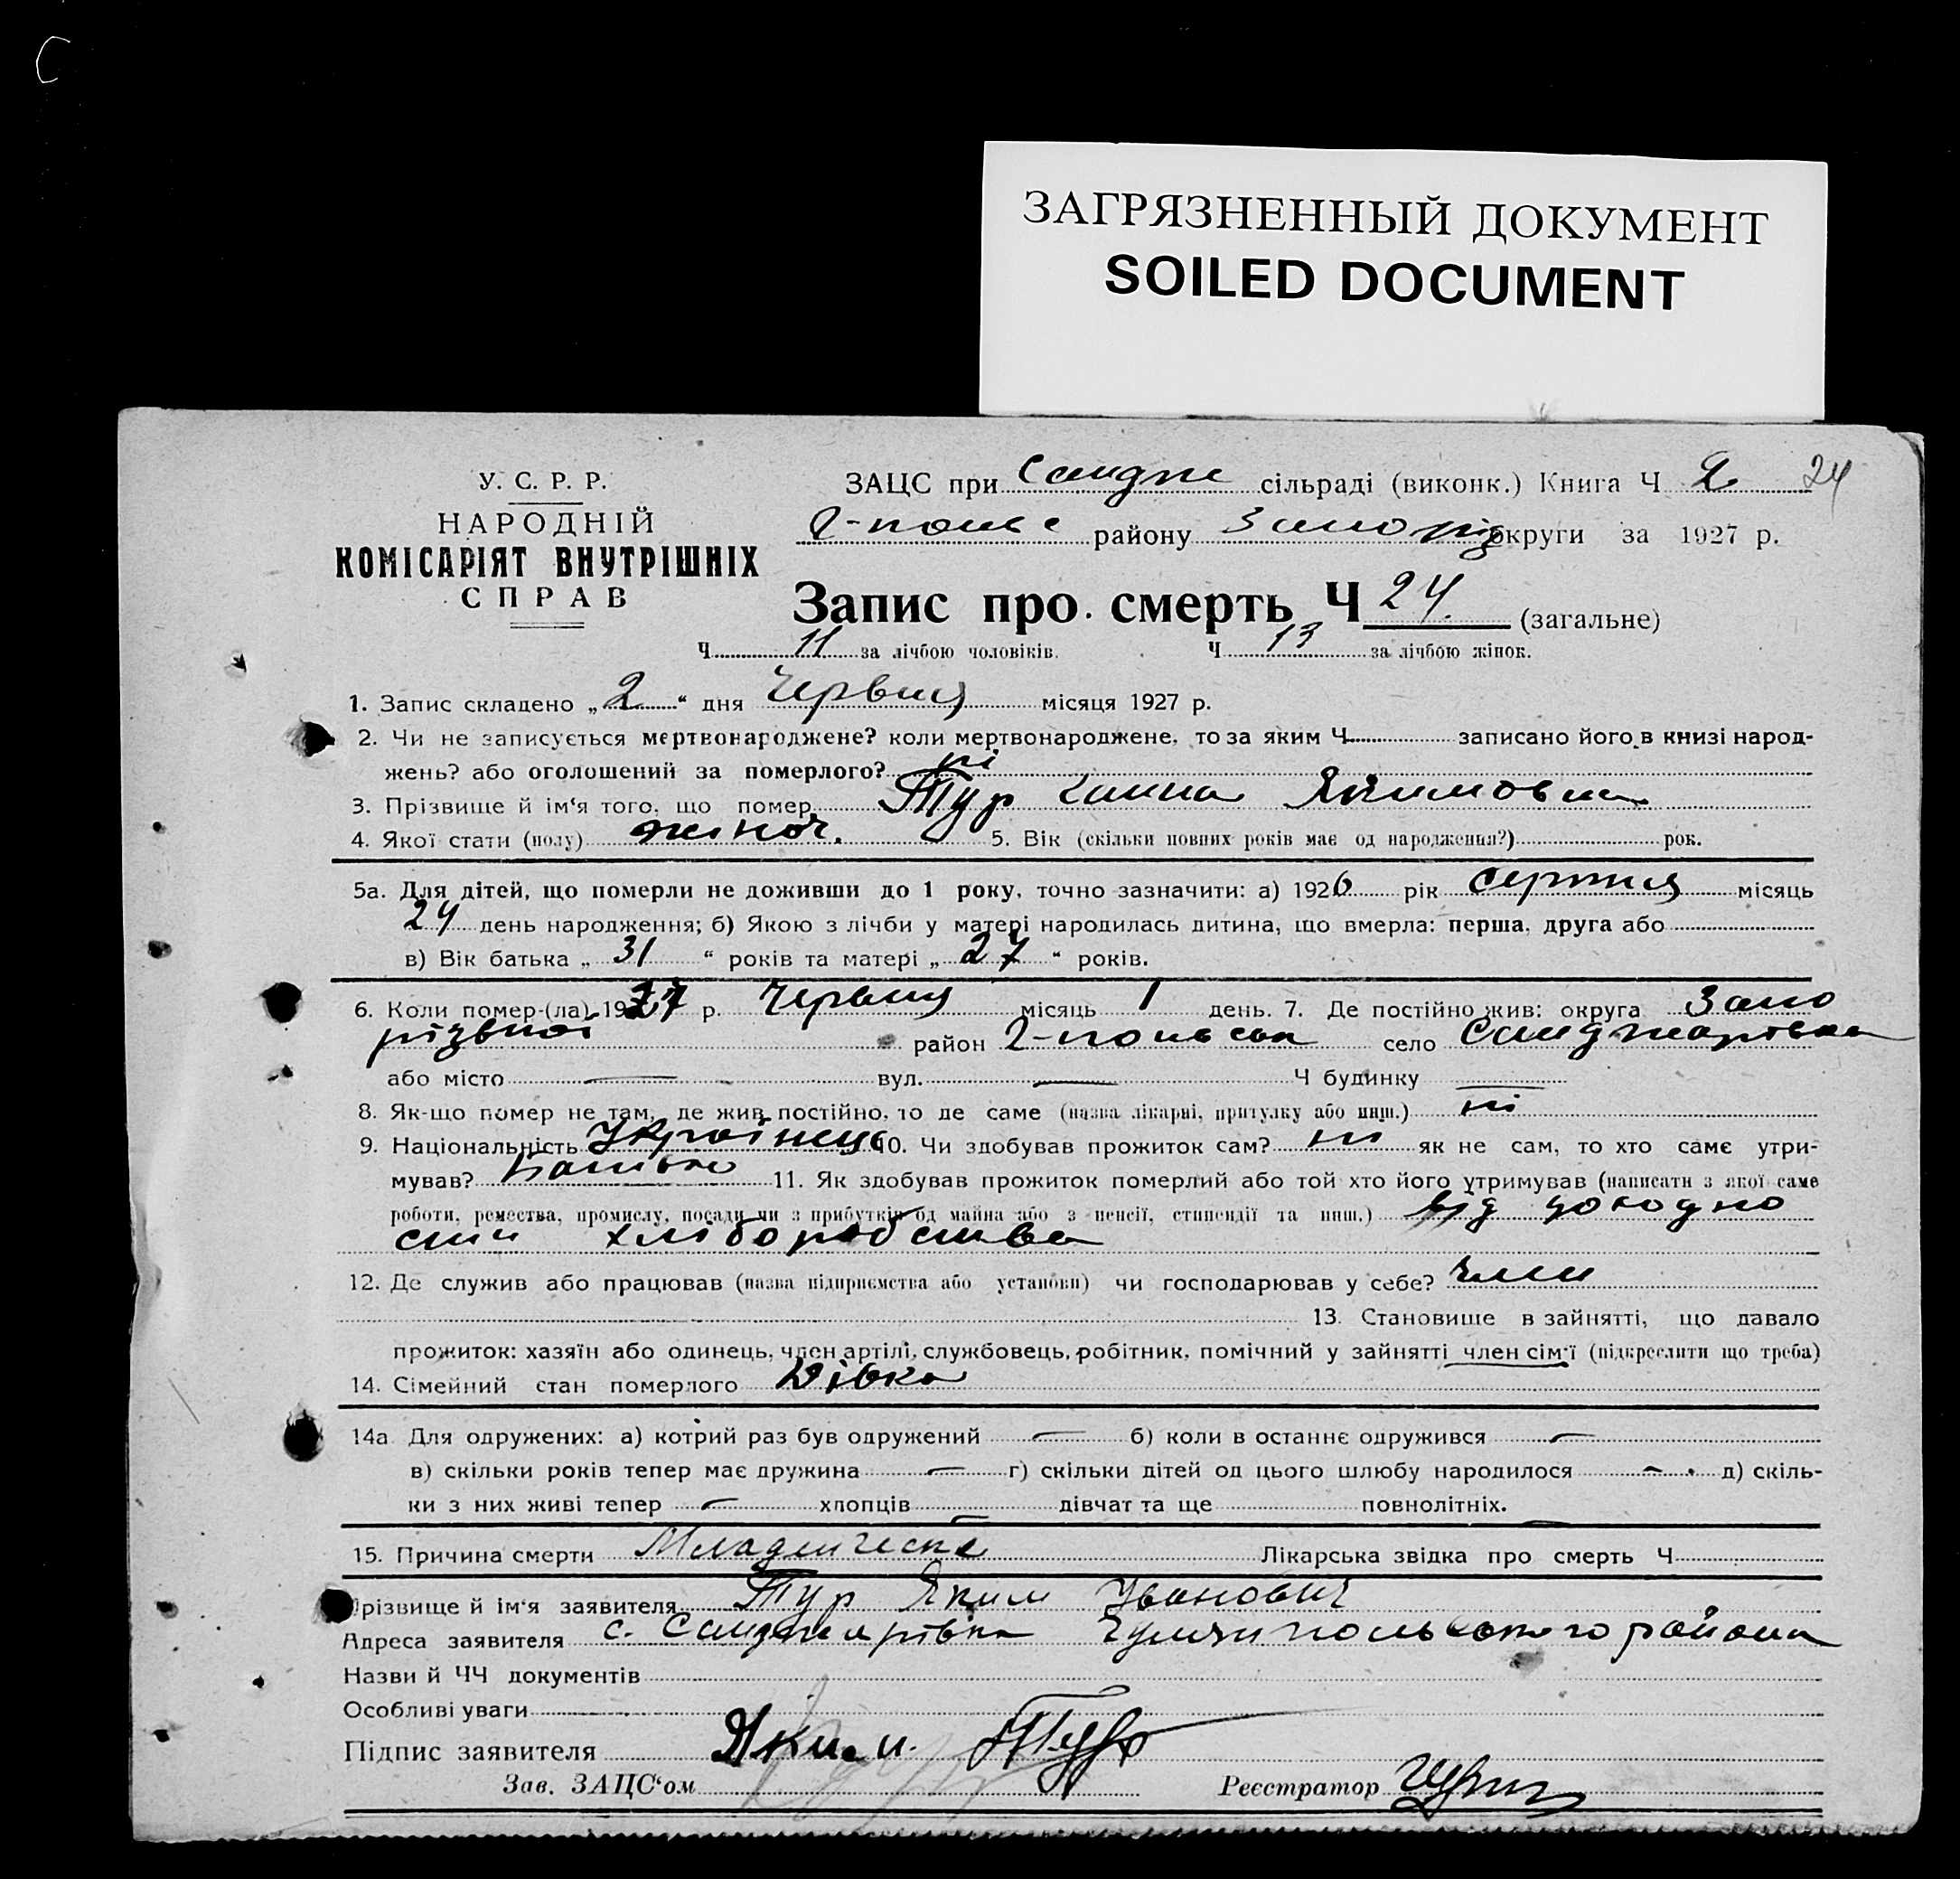 ЗАГРЯЗНЕННЫЙ ДОКУМЕНТ
SOILED DOCUMENT
У. С. Р. Р.
НАРОДНІЙ
КОМІСАРІЯТ ВНУТРІШНІХ
СПРАВ
ЗАЦС при Сандж сільраді (виконк.) Книга Ч 2 24
району Запоріз округи за 1927 р.
Запис про смерть Ч 24. (загальне)
Ч 11 за лічбою чоловіків. Ч 13 за лічбою жінок.
1. Запис складено „2“ дня Червня місяця 1927 р.
2. Чи не записується мертвонароджене? коли мертвонароджене, то за яким Ч записано його в книзі народ-
жень? або оголошений за померлого? ні
3. Прізвище й ім'я того, що помер Тур Ганна Якимовна
4. Якої стати (полу) жіноч. 5. Вік (скільки повних років має од народження?) рок.
5а. Для дітей, що померли не доживши до 1 року, точно зазначити: а) 1926 рік серпня місяць
24 день народження; б) Якою з лічби у матері народилась дитина, що вмерла: перша, друга або
в) Вік батька „31“ років та матері „27“ років.
6. Коли помер-(ла) 1927 р. Червня місяць 1 день. 7. Де постійно жив: округа Запо
різької район Г-польськ село Санджарівка
або місто — вул. — Ч будинку —
8. Як-що помер не там, де жив постійно, то де саме (назва лікарні, притулку або инш.) ні
9. Національність Українець 10. Чи здобував прожиток сам? ні як не сам, то хто саме утри-
мував? Батько 11. Як здобував прожиток померлий або той хто його утримував (написати з якої саме
роботи, ремества, промислу, посади чи з прибутків од майна або з пенсії, стипендії та инш.) від доходно
сти хліборобства
12. Де служив або працював (назва підприємства або установи) чи господарював у себе?
13. Становище в зайнятті, що давало
прожиток: хазяїн або одинець, член артілі, службовець, робітник, помічний у зайнятті член сім'ї (підкреслити що треба)
14. Сімейний стан померлого Дівка
14а Для одружених: а) котрий раз був одружений — б) коли в останнє одружився —
в) скільки років тепер має дружина — г) скільки дітей од цього шлюбу народилося — д) скіль-
ки з них живі тепер — хлопців — дівчат та ще повнолітніх. —
15. Причина смерти Младенческа Лікарська звідка про смерть Ч
Прізвище й ім'я заявителя Тур Яким Іванович
Адреса заявителя с. Санджарівка Гуляйпольського района
Назви й ЧЧ документів
Особливі уваги
Підпис заявителя Яким Тур
Зав. ЗАЦС'ом Реєстратор